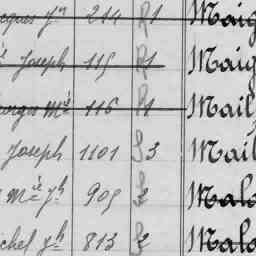 cques Jh 214 R1 Maig
é Joseph 115 R1 Maig
orges Mié 116 R1 Mail
Joseph 1101 S3 Mail
Mié Jh 905 S2 Mala
ichel Jh 813 S2 Mala